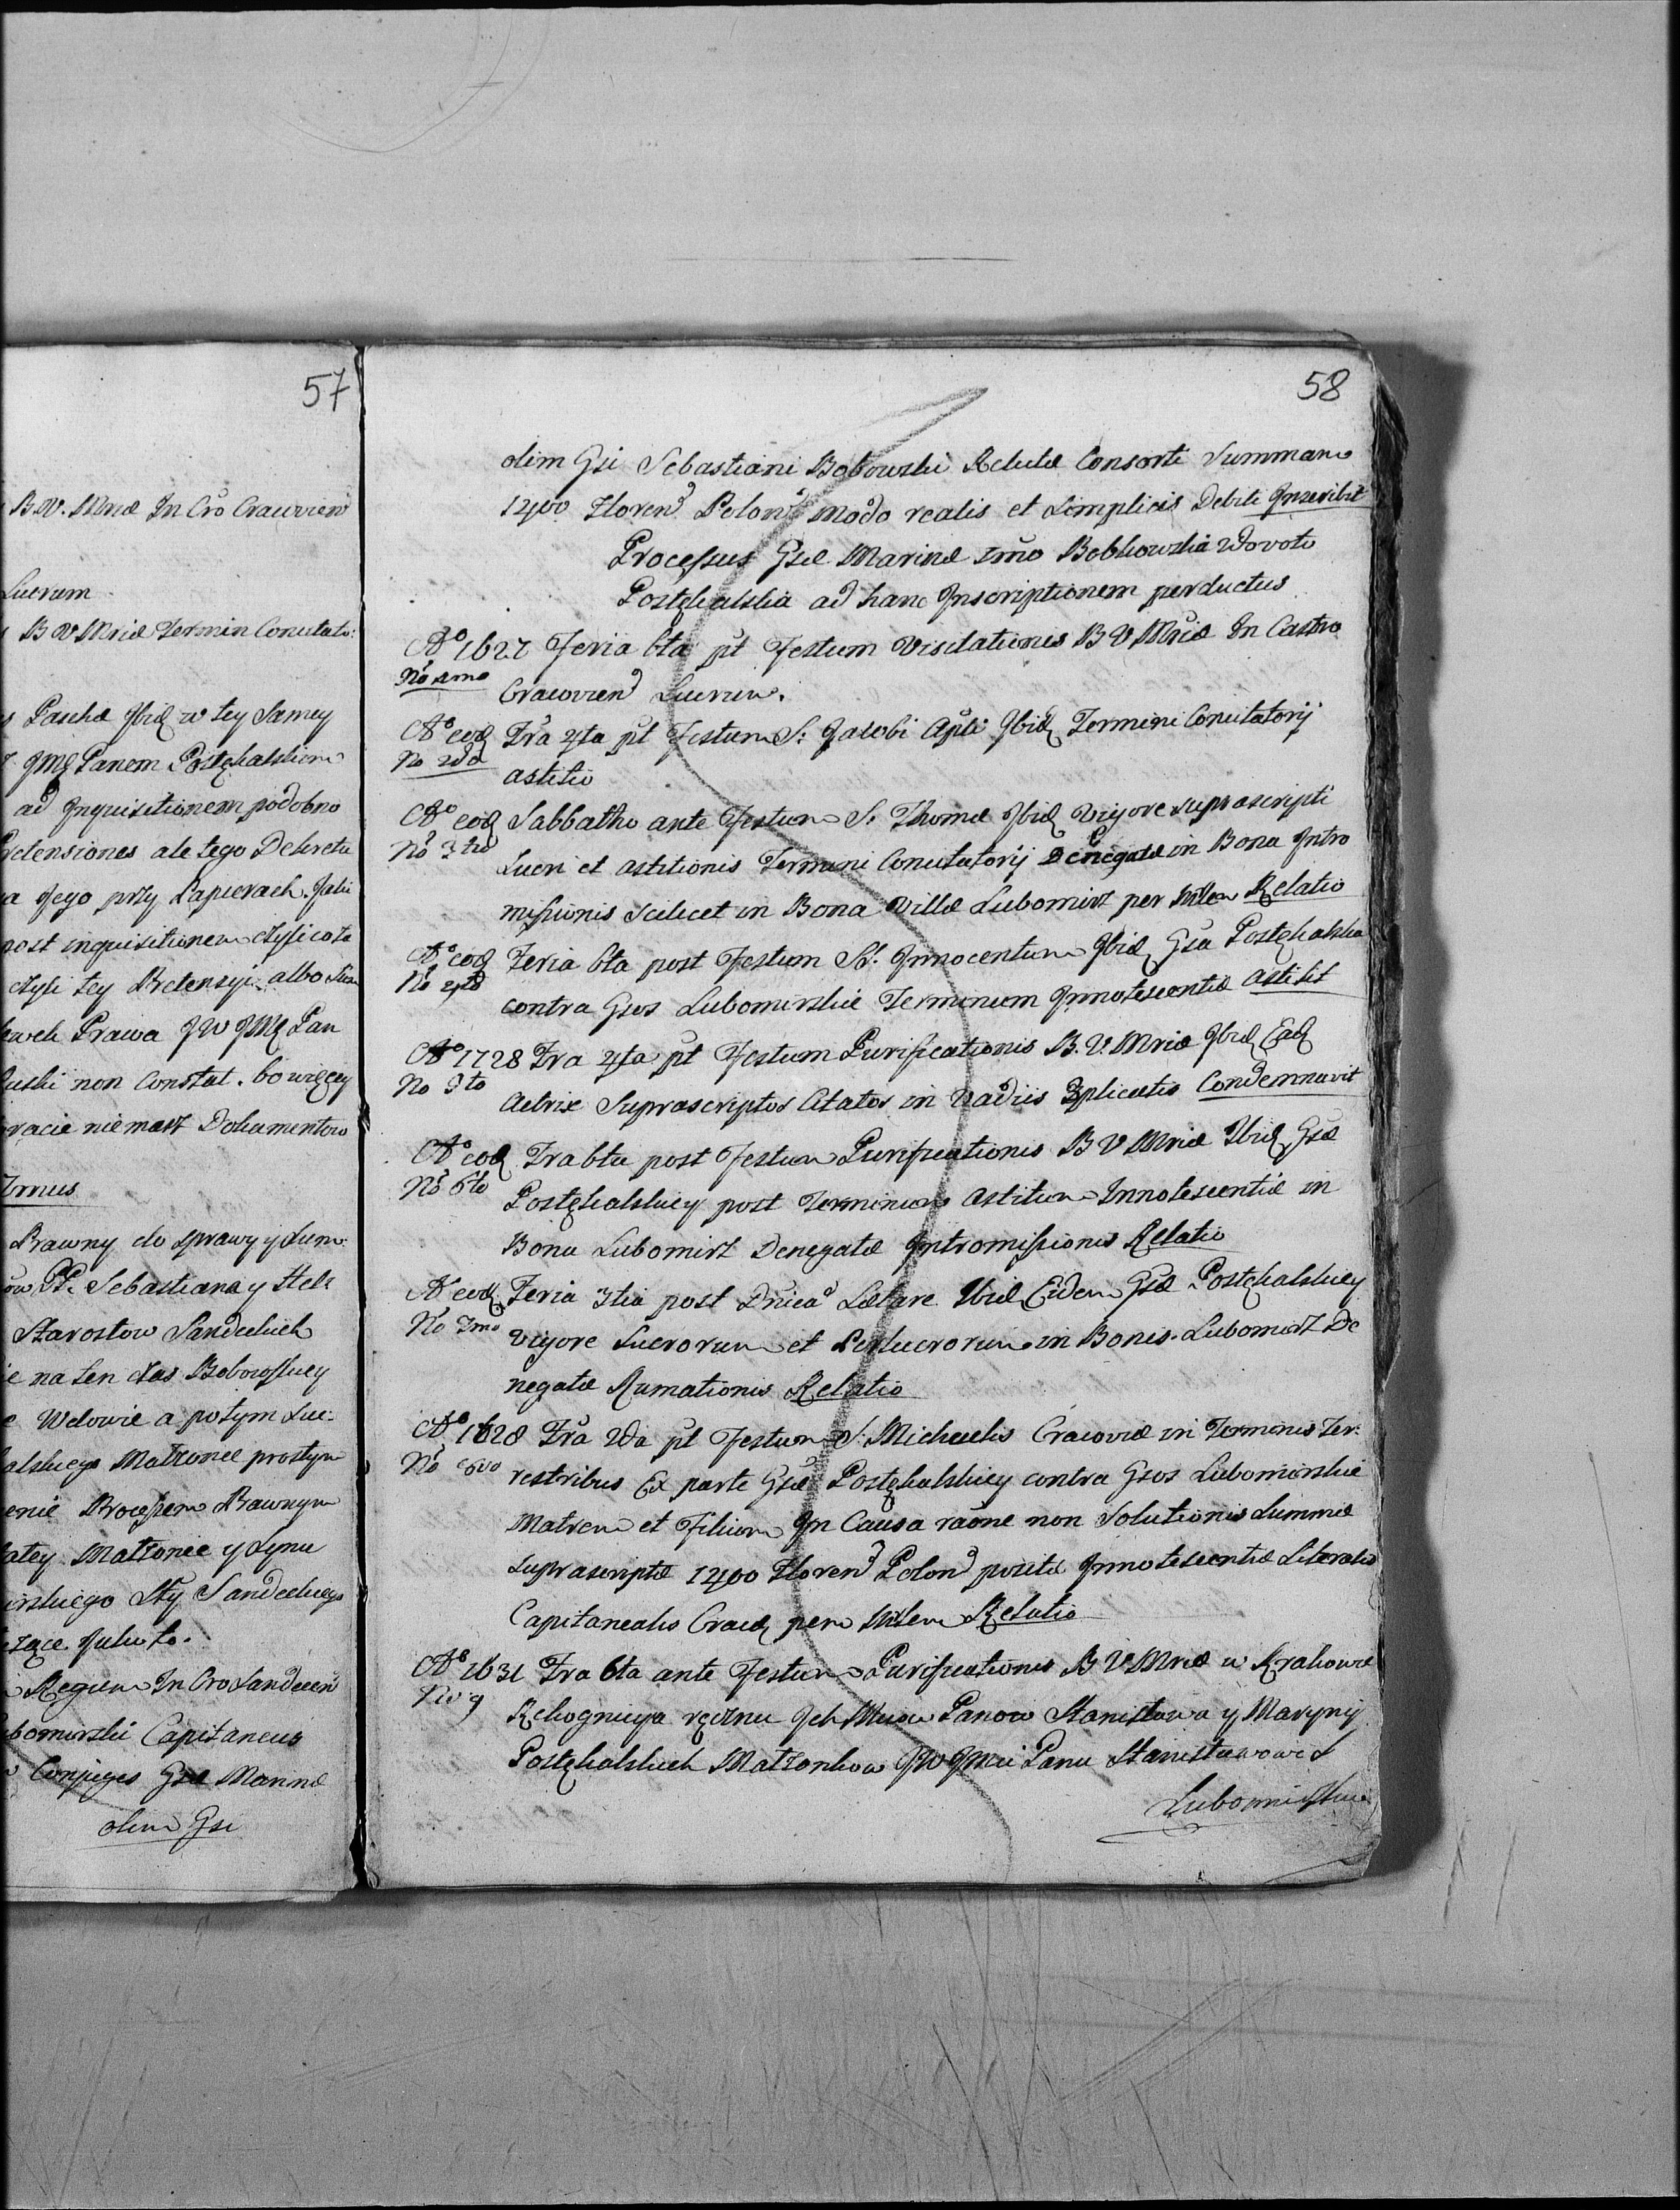 57
B.V. Mriæ In Cro Cracovien
Lucrum
B V Mriæ Termin Conutato:
Paschæ Ibid w tey Samey
JMq Panem Postękalskiem
ad Inquisitionem podobno
Pretensiones ale tego Dekretu
a Jego przy Papierach. Jak
post inquisitionem czyli co to
czyli tey Pretensyi albo
Prawa JW JMq Pan
non Constat. bo więcey
racie niemasz Dokumentow
Prawny do sprawy y Sum:
PP. Sebastiana y Hele
Starostow Sandeckich
na ten czas Bobowskiey
Wdowie a potym Luc:
alskiego Małzonce prostym
enie Processem Prawnym
Małzonce y Synu
irskiego Sty Sandeckiego
Regum In Cro Sandecen
bomirski Capitaneus
Conjuges Gsæ Marinæ
olim Gsi
58
olim Gsi Sebastiani Bobowski Relictæ Consorti Summam
1400 Floren Polon modo realis et simplicis Debiti Inscribit
Processus Gsæ Marinæ 1mo Bobkowskia 2do voto
Postękalskia ad hanc Inscriptionem perductus
Aº 1627 Feria 6ta pt Festum Visitationis B V Mriæ In Castro
No 1mo
Cracovien Lucrum.
Aº eod Fra 4ta pt Festum S: Jacobi Apli Ibid Termini Conutatorij
No 2do
astitio
Aº eod Sabbatho ante Festum S. Thomæ Ibid vigore suprascripti
No 3tio
Lucri et astitionis Termini Conutatorij Denegatæ in Bona Intro
missionis scilicet in Bona Villæ Lubomirz per Mlem Relatio
Aº eod Feria 6ta post Festum SS. Innocentum Ibid Gsa Postękalska
No 4to
contra Gsos Lubomirskie Terminum Innotescentiæ astitit
Aº 1728 Fra 4ta pt Festum Purificationis B. V. Mriæ Ibid Ead
No 5to
Actrix Suprascriptos Citatos in Vadiis 3plicatis Condemnavit
Aº eod Fra 6ta post Festum Purificationis B V Mriæ Ibid Gsæ
No 6to
Postękalskiey post Terminum astitum Innotescentiæ in
Bona Lubomirz Denegatæ Intromissionis Relatio
Aº eod Feria 3tia post Dnica Lætare Ibid Eidem Gsæ Postękalskiey
No 7mo
vigore Lucrorum et Perlucrorum in Bonis Lubomirz De
negatæ Rumationis Relatio
Aº 1628 Fra 2da pt Festum S. Michaelis Cracoviæ in Terminis Ter:
No 8vo
restribus Ex parte Gsæ Postękalskiey contra Gsos Lubomirskie
Matrem et Filium In Causa raone non Solutionis Summæ
suprascriptæ 1400 Floren Polon positæ Innotescentiæ Literalis
Capitanealis Cracq per Mlem Relatio
Aº 1631 Fra 6ta ante Festum Purificationis B V Mriæ w Krakowie
No 9
Rekognicya ręczna Ich Mciow Panow Stanisława y Maryny
Postękalskich Małzonkow JW JMci Panu Stanisławowi